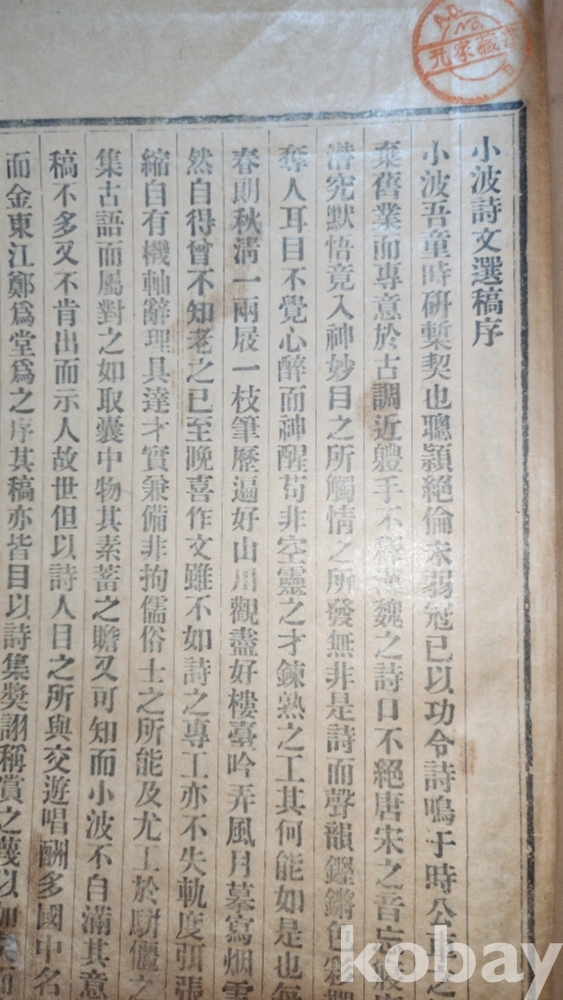 小波詩文選稿序
小波吾童時硏槧契也聰穎絕倫未弱冠已以功令詩鳴于時公車之
棄舊業而專意於古調近軆手不釋漢魏之詩口不絕唐宋之音忘
潛究默悟竟入神妙目之所觸情之所發無非是詩而聲韻鏗鏘色彩
奪人耳目不覺心醉而神醒苟非空靈之才鍊熟之工其何能如是也每
春朙秋淸一兩屐一枝筆歷遍好山川觀盡好樓臺吟弄風月摹寫烟雲
然自得曾不知老之已至晚喜作文雖不如詩之專工亦不失軌度弛張
縮自有機軸辭理具達才實兼備非拘儒俗士之所能及尤工於騈儷之
集古語而屬對之如取囊中物其素蓄之贍又可知而小波不自滿其意
稿不多又不肯出而示人故世但以詩人目之所與交遊唱酬多國中名
而金東江鄭爲堂爲之序其稿亦皆目以詩集奬詡稱賞之蔑以加
元家藏書
kobay